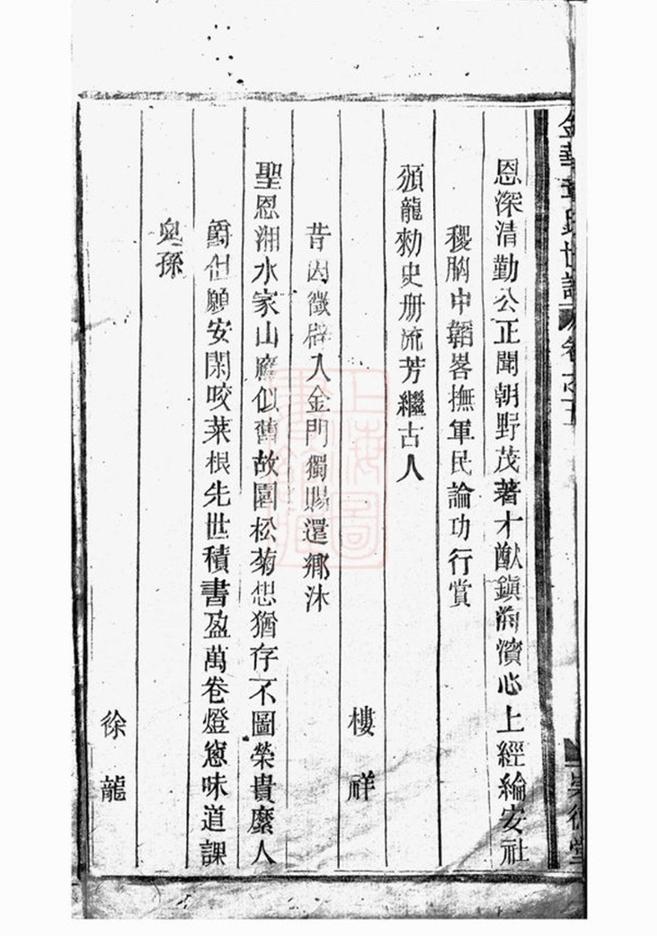 恩深清勤公正聞朝野茂著才猷鎮海濱心上經綸安社
稷胸中韜畧撫軍民論功行賞
頒龍勅史册流芳繼古人
樓祥
昔因徵辟入金門獨賜還鄉沐
聖恩湘水家山應似舊故園松菊想猶存不圖榮貴縻人
爵但願安閑咬菜根先世積書盈萬卷燈窓味道課
兒孫
徐龍
上海圖書館藏